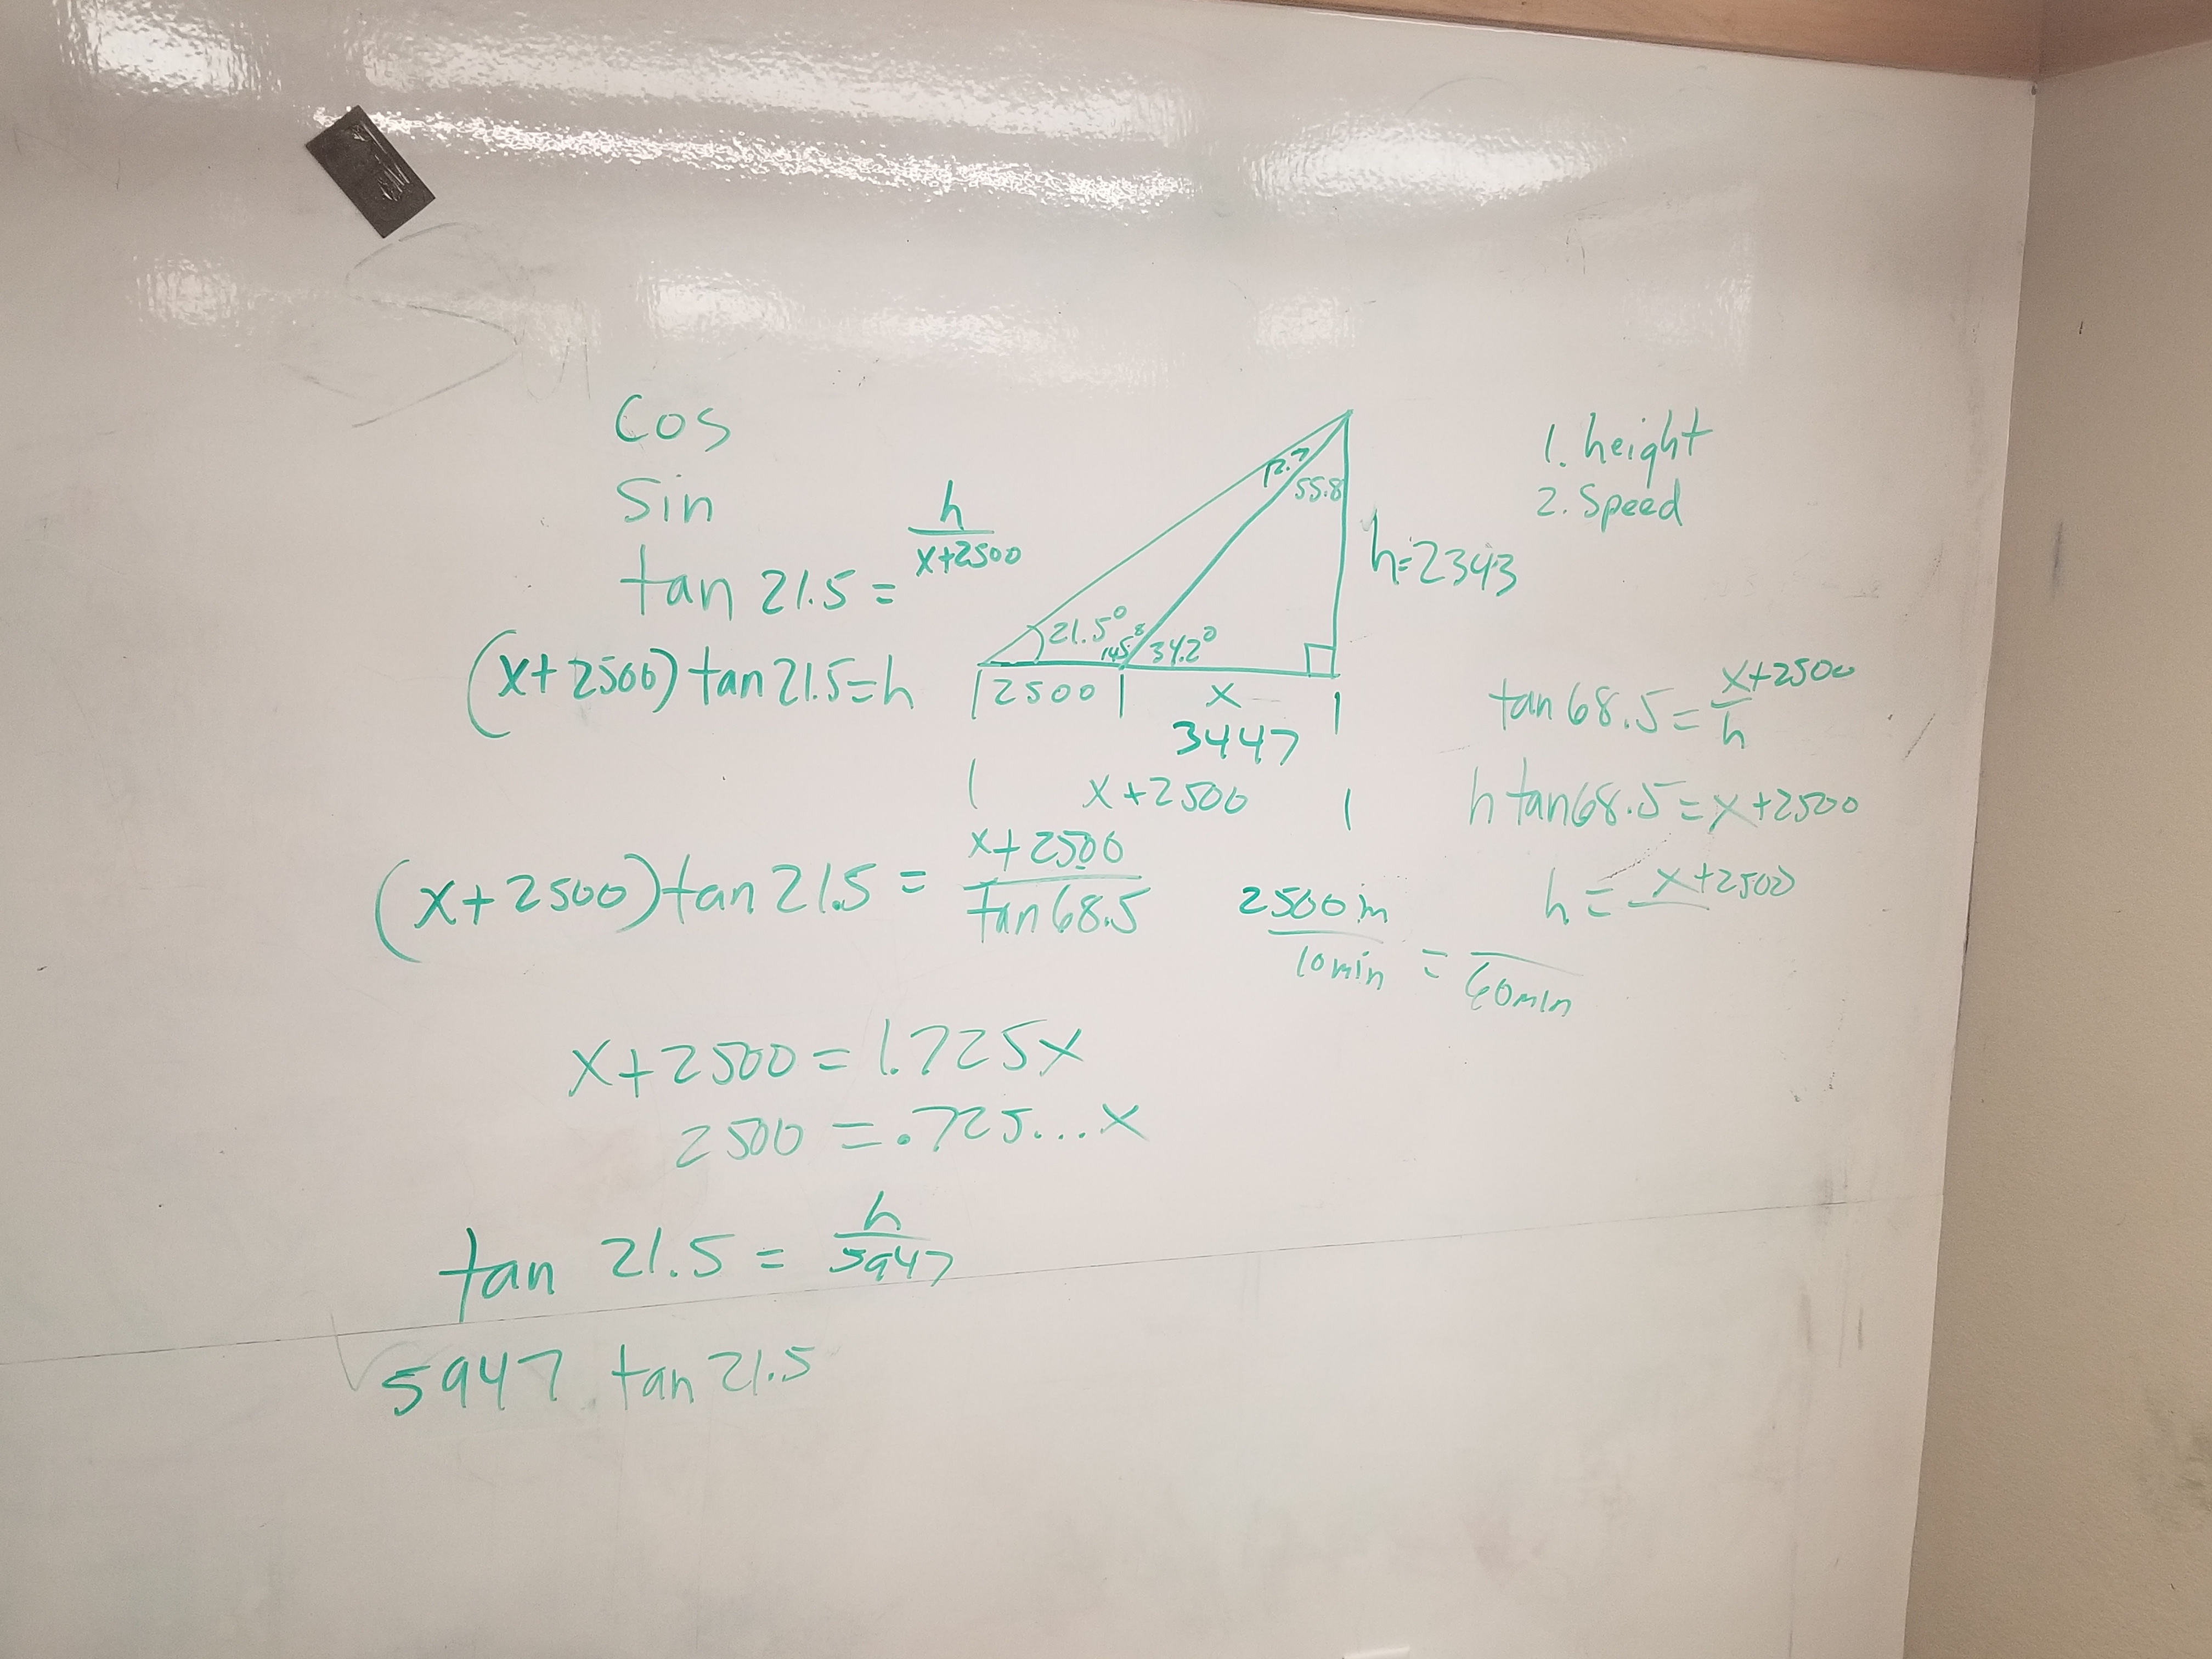 Cos
Sin
tan 21.5 = h/x+2500
(x+2500) tan 21.5 = h
12.7
55.8
21.5°
145.8
34.2°
h=2343
2500
x
3447
x+2500
1. height
2. Speed
tan 68.5 = x+2500/h
h tan 68.5 = x+2500
h = x+2500
(x+2500) tan 21.5 = x+2500/tan 68.5
2500 m/10 min = /60 min
x+2500 = 1.725x
2500 = .725...x
tan 21.5 = h/5947
5947 tan 21.5